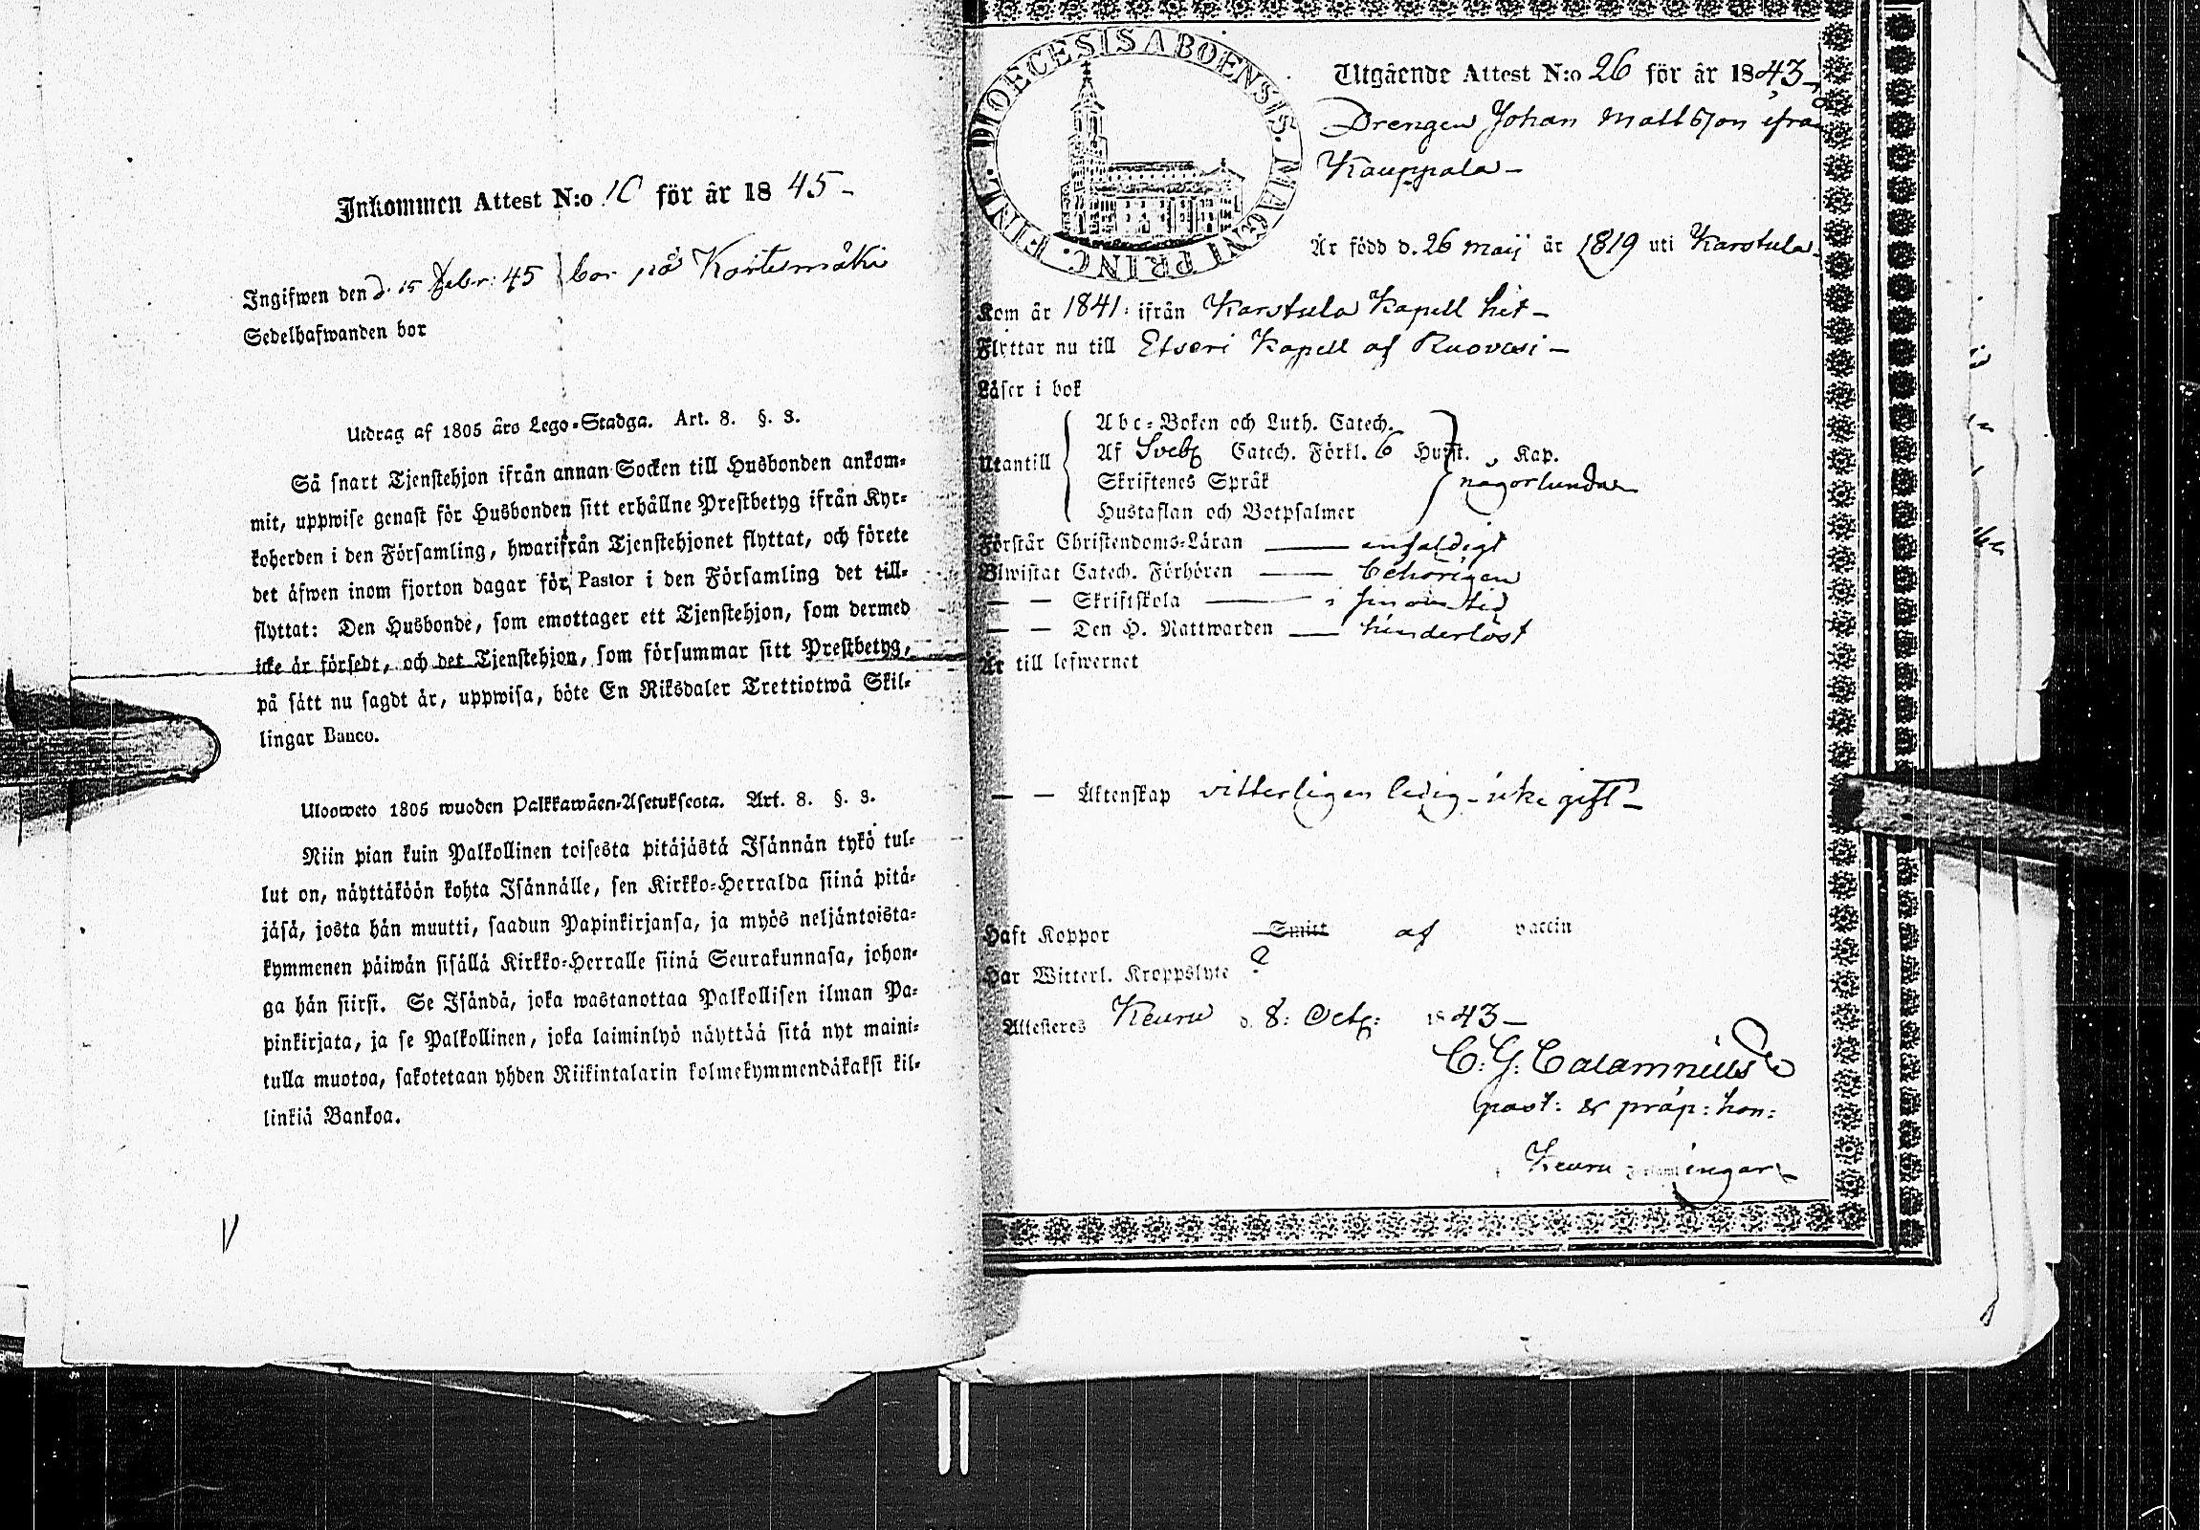 Inkommen Attest N:o 10 för år 1845 -
Ingifwen den d. 15 Febr: 45 bor på Kortesmäki
Sedelhafwanden bor
Utdrag af 1805 års Lego-Stadga. Art. 8. §. 3.
Så snart Tjenstehjon ifrån annan Socken till Husbonden ankom-
mit, uppwise genast för Husbonden sitt erhållne Prestbetyg ifrån Kyr-
koherden i den Församling, hwarifrån Tjenstehjonet flyttat, och förete
det äfwen inom fjorton dagar för Pastor i den Församling det till-
flyttat: Den Husbonde, som emottager ett Tjenstehjon, som dermed
icke är försedt, och det Tjenstehjon, som försummar sitt Prestbetyg,
på sätt nu sagdt är, uppwisa, böte En Riksdaler Trettiotwå Skil-
lingar Banco.
Uloosweto 1805 wuoden Palkkawäen-Asetuksesta. Art. 8. §. 3.
Niin pian kuin Palkollinen toisesta pitäjästä Isännän tykö tul-
lut on, näyttäköön kohta Isännälle, sen Kirkko-Herralda siinä pitä-
jäsä, josta hän muutti, saadun Papinkirjansa, ja myös neljäntoista-
kymmenen päiwän sisällä Kirkko-Herralle siinä Seurakunnasa, johon-
ga hän siirsi. Se Isändä, joka wastanottaa Palkollisen ilman Pa-
pinkirjata, ja se Palkollinen, joka laiminlyö näyttää sitä nyt maini-
tulla muotoa, sakotetaan yhden Riikintalarin kolmekymmendäkaksi kil-
linkiä Bankoa.
DIOECESIS ABOENSIS. MAGNI PRINC. FINL.
Utgående Attest N:o 26 för år 1843 -
Drengen Johan Mattsson ifrån
Kauppala -
Är född d. 26 Maij år 1819 uti Karstula -
Kom år 1841: ifrån Karstula Kapell hit -
Flyttar nu till Etseri Kapell af Ruovesi -
Läser i bok
Abc-Boken och Luth. Catech.
Utantill Af Sveb: Catech. Förkl. 6 Hufst. Kap.
Skriftenes Språk någorlunda
Hustaflan och Botpsalmer
Förstår Christendoms-Läran enfaldigt
Biwistat Catech. Förhören behörigen
— — Skriftskola i sinom tid
— — Den H. Nattwarden hinderlöst
Är till lefwernet
— — Äktenskap vitterligen ledig - icke gift -
Haft Koppor Smitt af vaccin
Har Witterl. Kroppslyte ?
Attesteras Keuru d. 8: Octb: 1843 -
C. G. Calamnius
past: & präp: hon:
Keuru